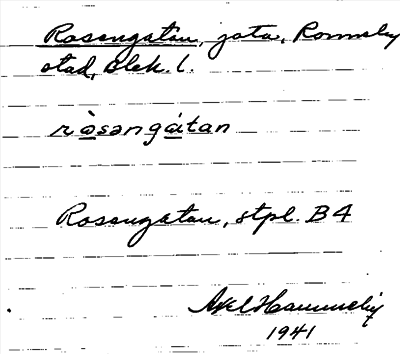 Rosengatan, gata, Ronneby
stad, Blek. l.
ròsəngátan
Rosengatan, stpl. B4
Axel
1941